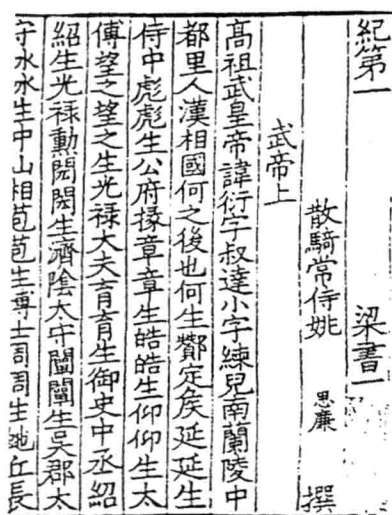 紀第一 梁書一
散騎常侍姚 思廉 撰
武帝上
髙祖武皇帝諱衍字叔達小字練兒南蘭陵中
都里人漢相國何之後也何生酇定矦延延生
侍中彪彪生公府掾章章生皓皓生仰仰生太
傅望之望之生光禄大夫育育生御史中丞紹
紹生光禄勳閎閎生濟陰太守闡闡生吳郡太
守氷氷生中山相苞苞生博士周周生虵丘長